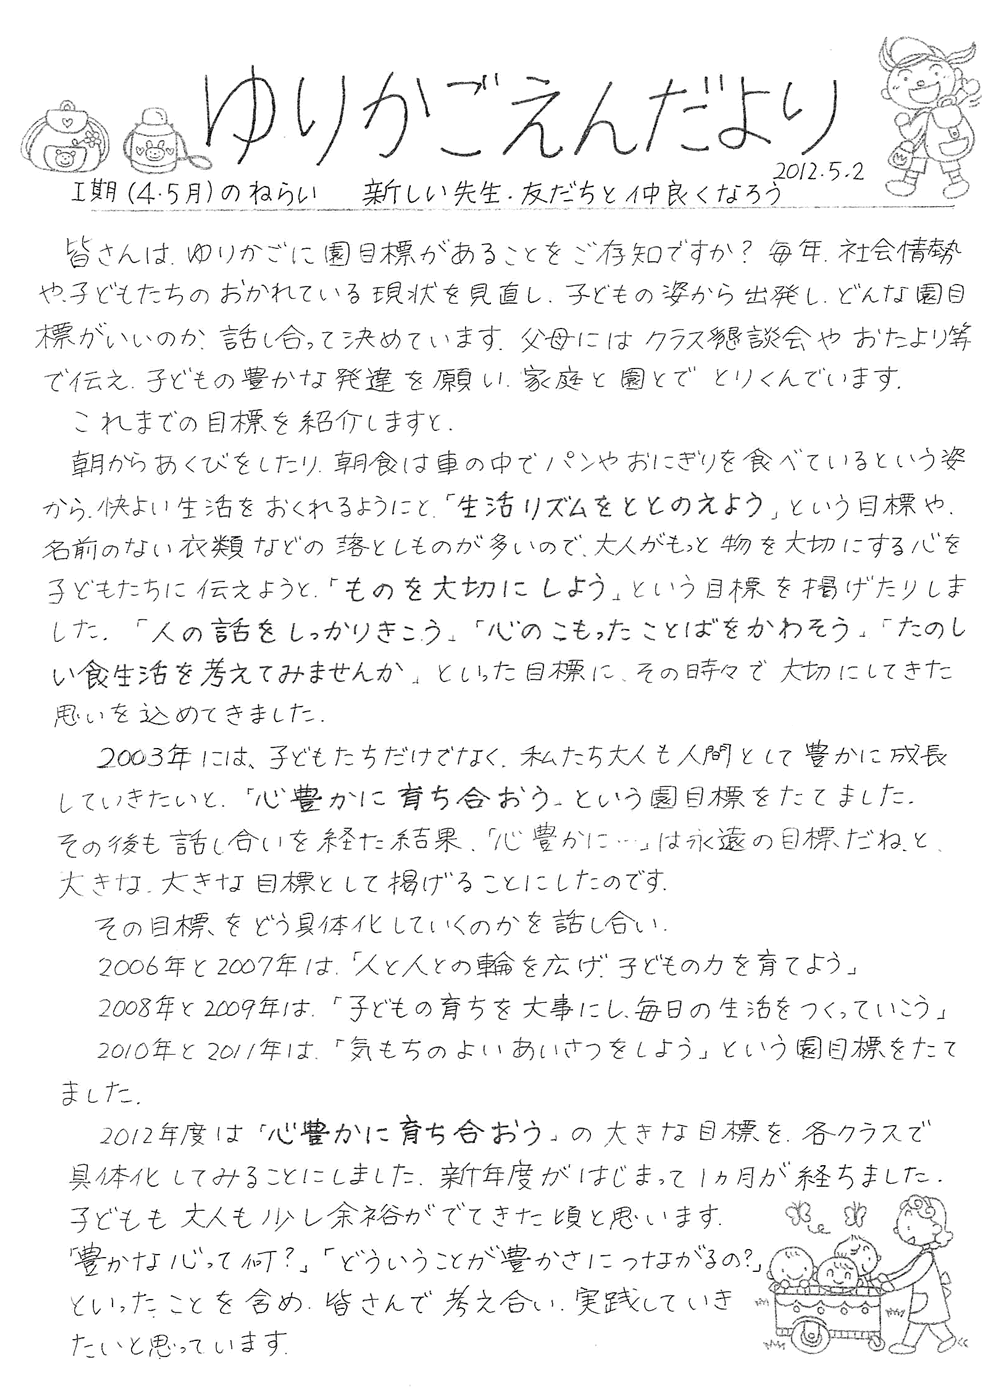 ゆりかごえんだより
2012.5.2
I期(4・5月)のねらい 新しい先生・友だちと仲良くなろう
皆さんは、ゆりかごに園目標があることをご存知ですか? 毎年、社会情勢
や、子どもたちのおかれている現状を見直し、子どもの姿から出発し、どんな園目
標がいいのか、話し合って決めています。父母にはクラス懇談会やおたより等
で伝え、子どもの豊かな発達を願い、家庭と園とでとりくんでいます。
これまでの目標を紹介しますと、
朝からあくびをしたり、朝食は車の中でパンやおにぎりを食べているという姿
から、快よい生活をおくれるようにと、「生活リズムをととのえよう」という目標や、
名前のない衣類などの落としものが多いので、大人がもっと物を大切にする心を
子どもたちに伝えようと、「ものを大切にしよう」という目標を掲げたりしま
した。「人の話をしっかりきこう」「心のこもったことばをかわそう」「たのし
い食生活を考えてみませんか」といった目標に、その時々で大切にしてきた
思いを込めてきました。
2003年には、子どもたちだけでなく、私たち大人も人間として豊かに成長
していきたいと、「心豊かに育ち合おう」という園目標をたてました。
その後も話し合いを経た結果、「心豊かに…」は永遠の目標だね、と、
大きな、大きな目標として掲げることにしたのです。
その目標をどう具体化していくのかを話し合い、
2006年と2007年は、「人と人との輪を広げ、子どもの力を育てよう」
2008年と2009年は、「子どもの育ちを大事にし、毎日の生活をつくっていこう」
2010年と2011年は、「気もちのよいあいさつをしよう」という園目標をたて
ました。
2012年度は「心豊かに育ち合おう」の大きな目標を、各クラスで
具体化してみることにしました。新年度がはじまって1ヵ月が経ちました。
子どもも大人も少し余裕がでてきた頃と思います。
「豊かな心って何?」「どういうことが豊かさにつながるの?」
といったことを含め、皆さんで考え合い、実践していき
たいと思っています。